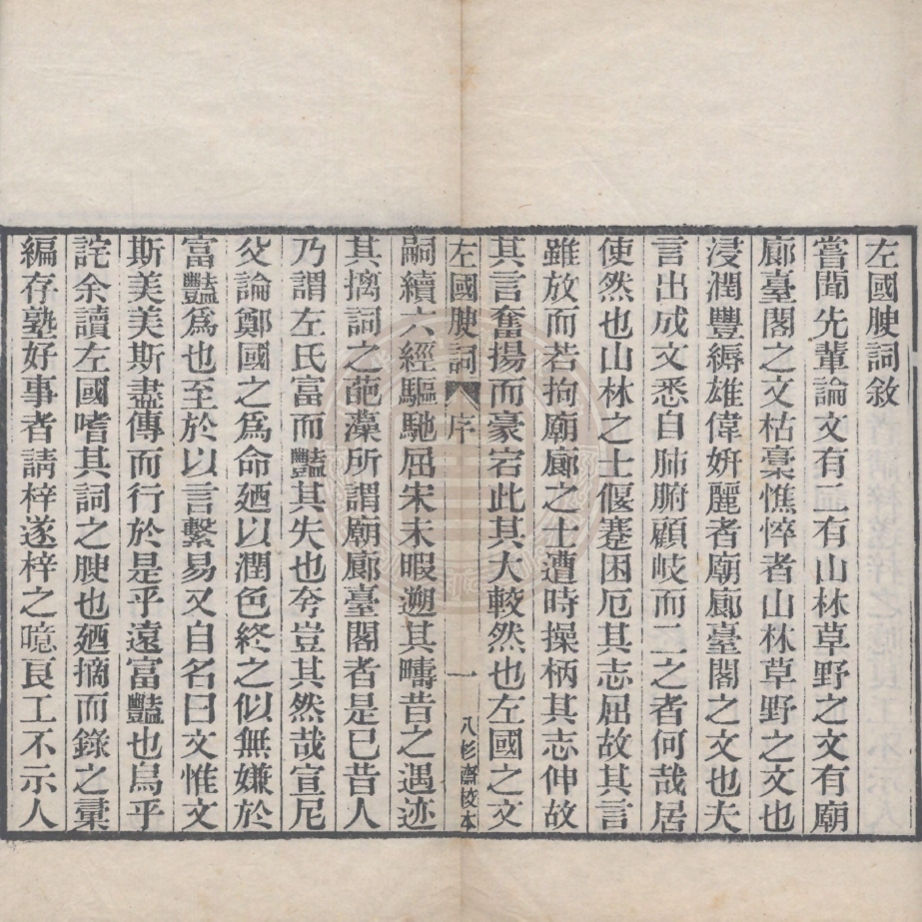 左國腴詞敘
嘗聞先輩論文有二有山林草野之文有廟
廊臺閣之文枯槀憔悴者山林草野之文也
浸潤豐縟雄偉妍麗者廟廊臺閣之文也夫
言出成文悉自肺腑顧岐而二之者何哉居
使然也山林之士偃蹇困厄其志屈故其言
雖放而若拘廟廊之士遭時操柄其志伸故
其言奮揚而豪宕此其大較然也左國之文
左國腴詞 序 一 八杉齋校本
嗣續六經驅馳屈宋未暇遡其疇昔之遇迹
其摛詞之葩藻所謂廟廊臺閣者是已昔人
乃謂左氏富而豔其失也夸豈其然哉宣尼
父論鄭國之爲命廼以潤色終之似無嫌於
富豔爲也至於以言繫易又自名曰文惟文
斯美美斯盡傳而行於是乎遠富豔也烏乎
詫余讀左國嗜其詞之腴也廼摘而錄之彙
編存塾好事者請梓遂梓之噫良工不示人